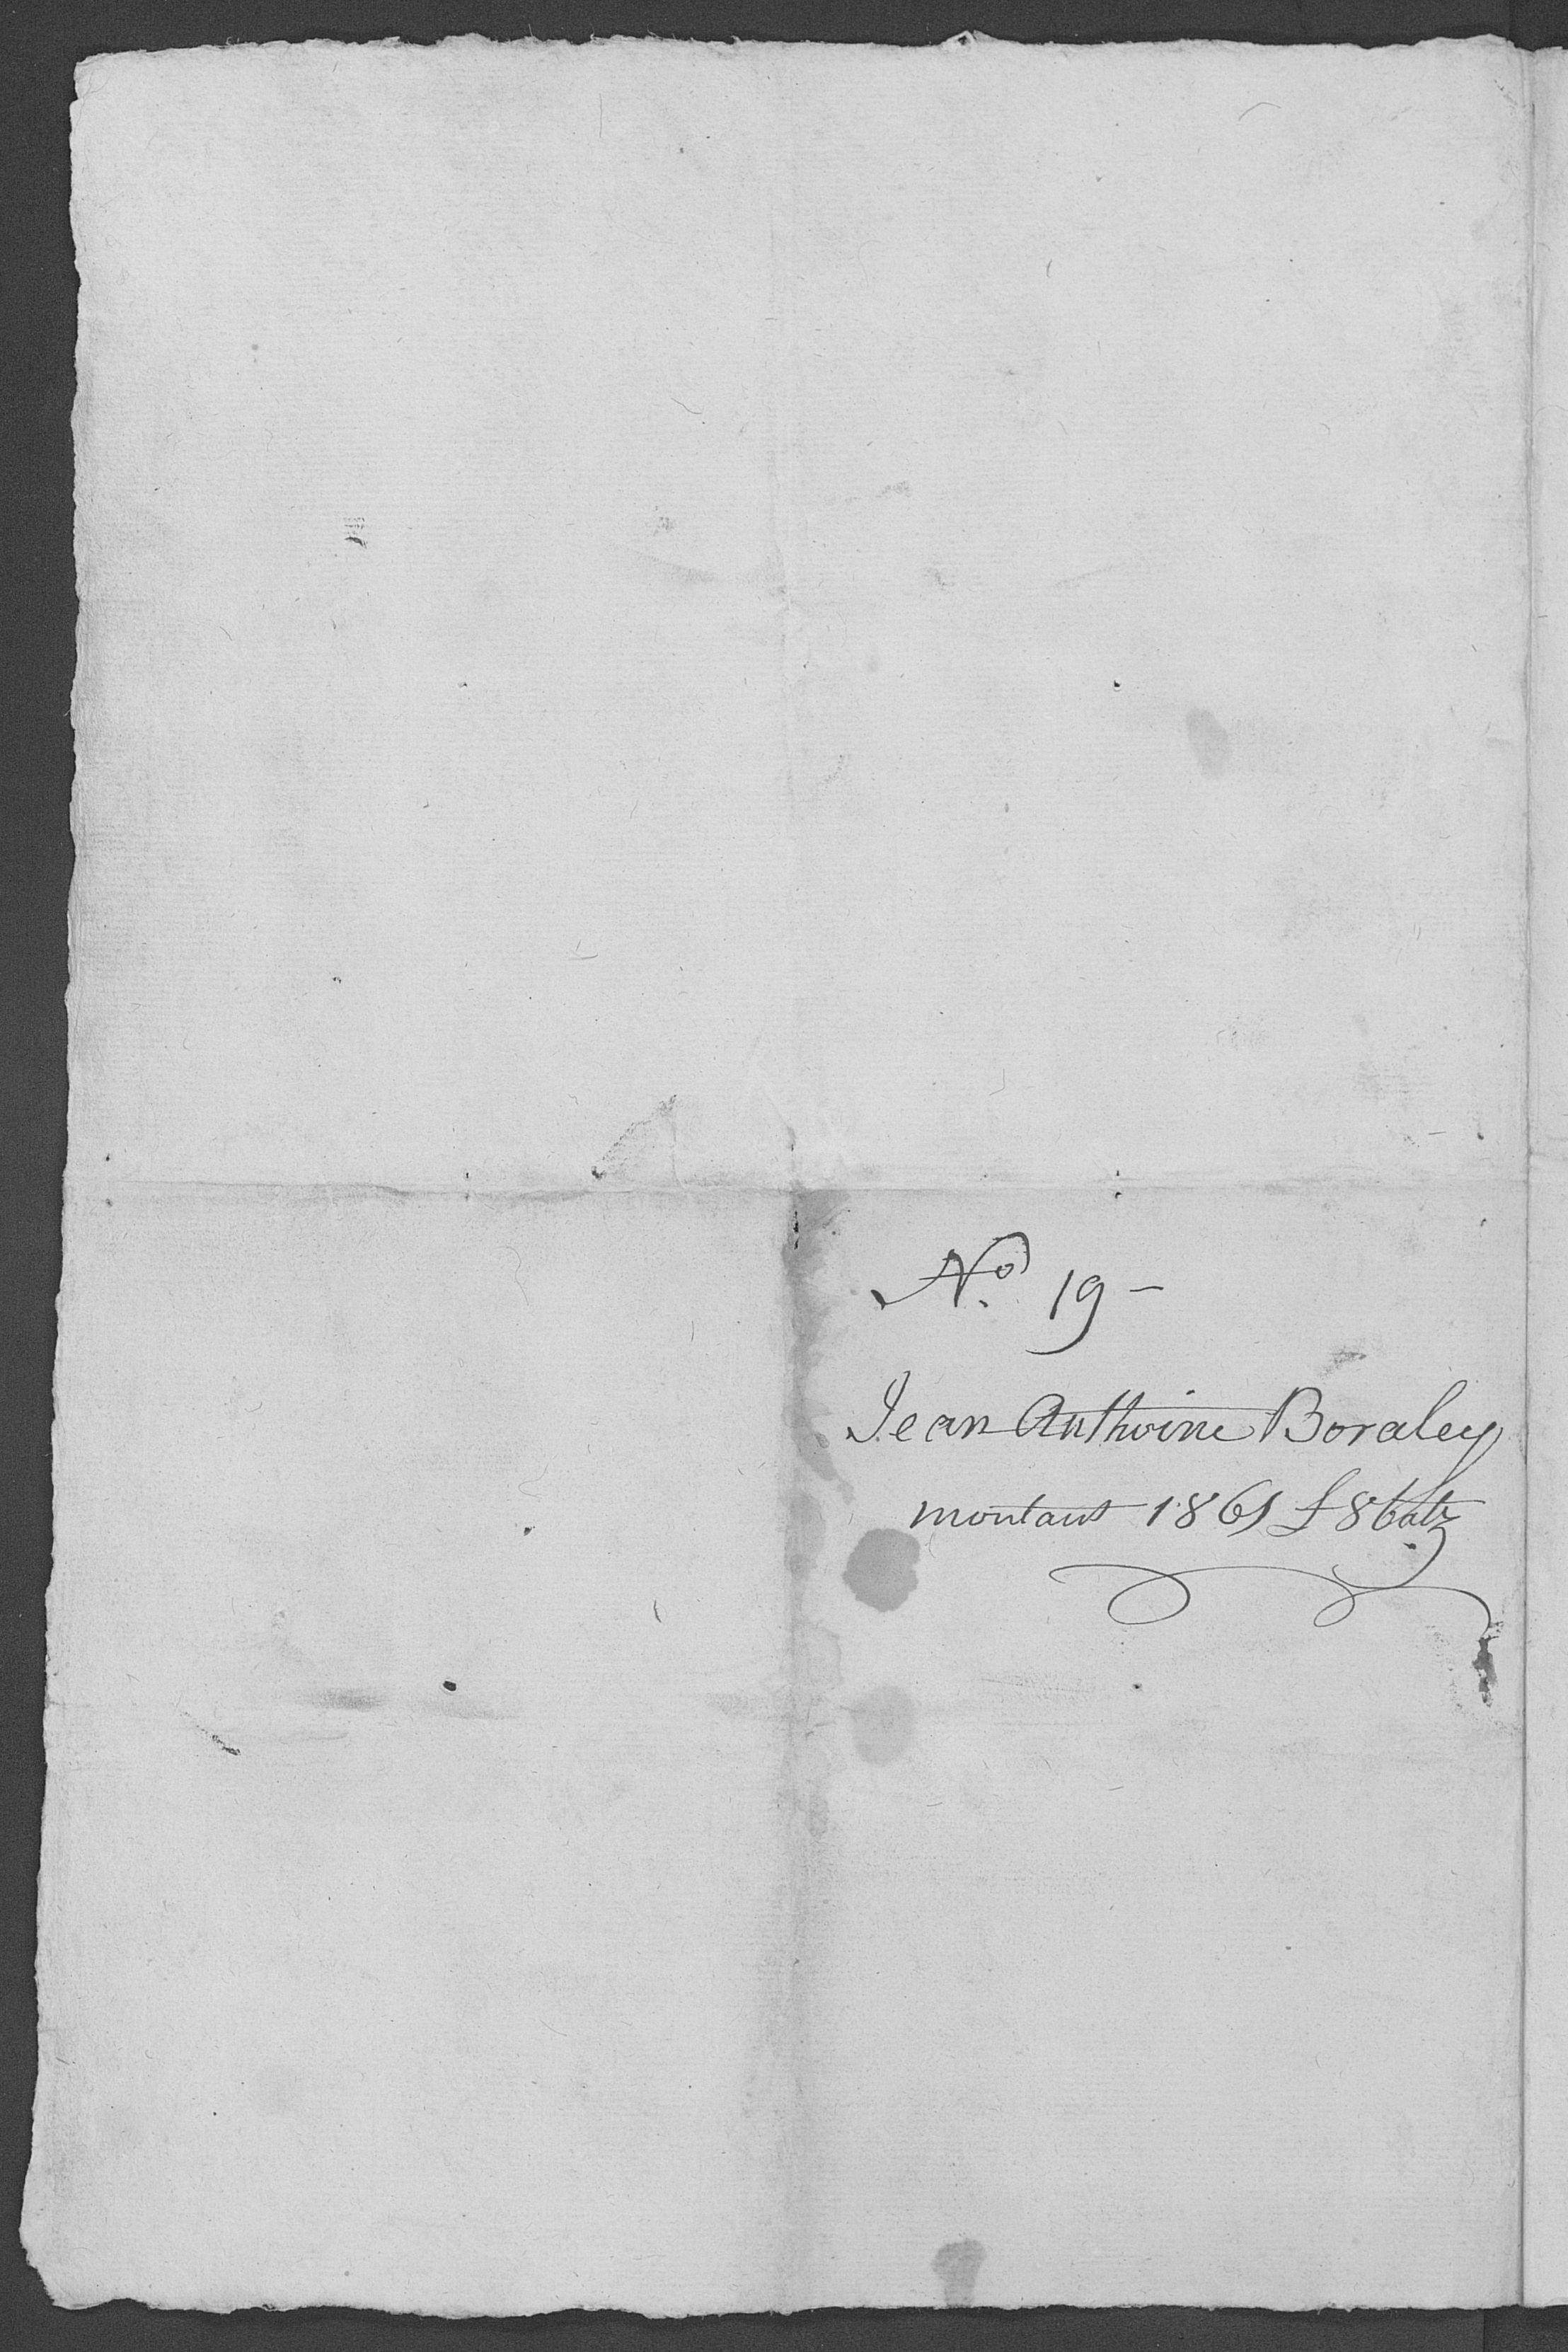 No. 19 -
Jean Anthoine Boraley
montant 1861 £ 8 batz